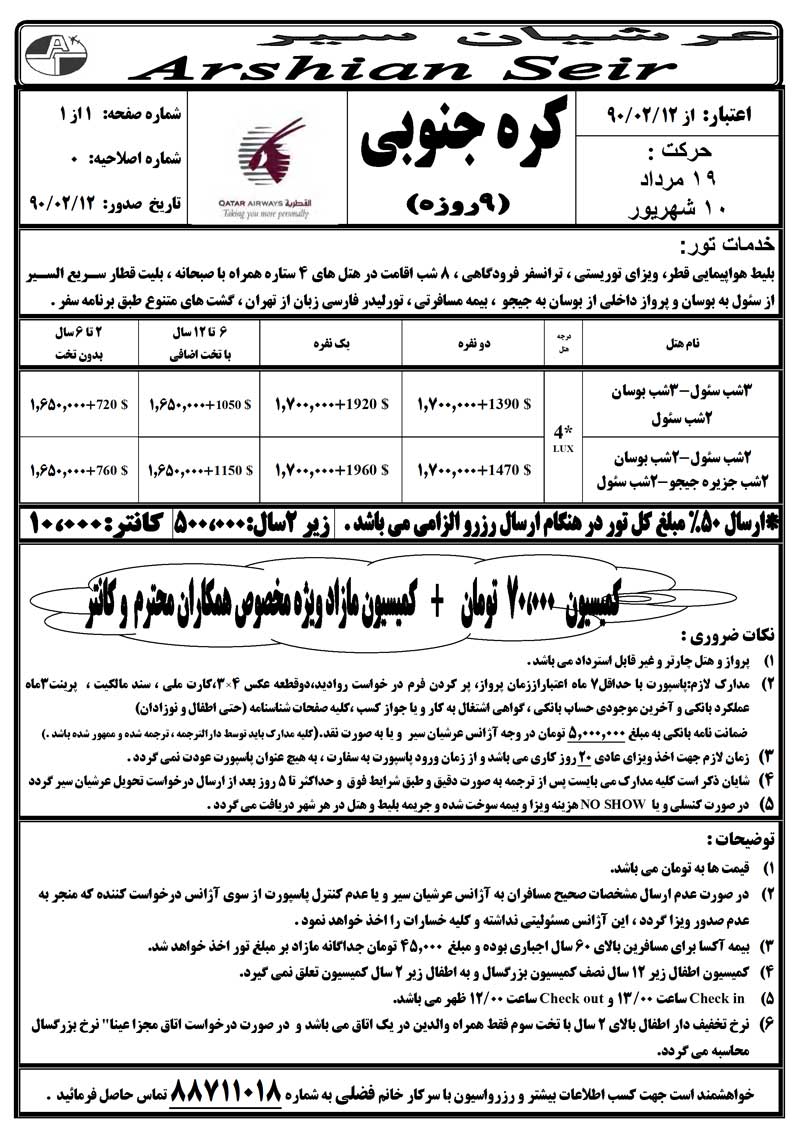 عرشیان سیر
Arshian Seir
اعتبار: از ۹۰/۰۲/۱۲
حرکت :
۱۹ مرداد
۱۰ شهریور
کره جنوبی
(۹روزه)
QATAR AIRWAYS القطرية
Taking you more personally
شماره صفحه: ۱از ۱
شماره اصلاحیه: ۰
تاریخ صدور: ۹۰/۰۲/۱۲
خدمات تور:
بلیط هواپیمایی قطر، ویزای توریستی ، ترانسفر فرودگاهی ، ۸ شب اقامت در هتل های ۴ ستاره همراه با صبحانه ، بلیت قطار سریع السیر
از سئول به بوسان و پرواز داخلی از بوسان به جیجو ، بیمه مسافرتی ، تورلیدر فارسی زبان از تهران ، گشت های متنوع طبق برنامه سفر .
نام هتل درجه هتل دو نفره یک نفره ۶ تا ۱۲ سال با تخت اضافی ۲ تا ۶ سال بدون تخت
۳شب سئول–۳شب بوسان
۲شب سئول
4* LUX
۱,۷۰۰,۰۰۰+1390 $ ۱,۷۰۰,۰۰۰+1920 $ ۱,۶۵۰,۰۰۰+1050 $ ۱,۶۵۰,۰۰۰+720 $
۲شب سئول–۲شب بوسان
۲شب جزیره جیجو–۲شب سئول
۱,۷۰۰,۰۰۰+1470 $ ۱,۷۰۰,۰۰۰+1960 $ ۱,۶۵۰,۰۰۰+1150 $ ۱,۶۵۰,۰۰۰+760 $
*ارسال ۵۰٪ مبلغ کل تور در هنگام ارسال رزرو الزامی می باشد . زیر ۲سال: ۵۰۰,۰۰۰ کانتر: ۱۰,۰۰۰
کمیسیون ۷۰,۰۰۰ تومان + کمیسیون مازاد ویژه مخصوص همکاران محترم و کانتر
نکات ضروری :
۱) پرواز و هتل چارتر و غیر قابل استرداد می باشد .
۲) مدارک لازم:پاسپورت با حداقل۷ ماه اعتباراززمان پرواز، پر کردن فرم در خواست روادید،دوقطعه عکس ۴×۳،کارت ملی ، سند مالکیت ، پرینت۳ماه
عملکرد بانکی و آخرین موجودی حساب بانکی ، گواهی اشتغال به کار و یا جواز کسب ،کلیه صفحات شناسنامه (حتی اطفال و نوزادان)
ضمانت نامه بانکی به مبلغ ۵,۰۰۰,۰۰۰ تومان در وجه آژانس عرشیان سیر و یا به صورت نقد.(کلیه مدارک باید توسط دارالترجمه ، ترجمه شده و ممهور شده باشد .)
۳) زمان لازم جهت اخذ ویزای عادی ۲۰ روز کاری می باشد و از زمان ورود پاسپورت به سفارت ، به هیچ عنوان پاسپورت عودت نمی گردد .
۴) شایان ذکر است کلیه مدارک می بایست پس از ترجمه به صورت دقیق و طبق شرایط فوق و حداکثر تا ۵ روز بعد از ارسال درخواست تحویل عرشیان سیر گردد
۵) در صورت کنسلی و یا NO SHOW هزینه ویزا و بیمه سوخت شده و جریمه بلیط و هتل در هر شهر دریافت می گردد .
توضیحات :
۱) قیمت ها به تومان می باشد.
۲) در صورت عدم ارسال مشخصات صحیح مسافران به آژانس عرشیان سیر و یا عدم کنترل پاسپورت از سوی آژانس درخواست کننده که منجر به
عدم صدور ویزا گردد ، این آژانس مسئولیتی نداشته و کلیه خسارات را اخذ خواهد نمود .
۳) بیمه آکسا برای مسافرین بالای ۶۰ سال اجباری بوده و مبلغ ۴۵,۰۰۰ تومان جداگانه مازاد بر مبلغ تور اخذ خواهد شد.
۴) کمیسیون اطفال زیر ۱۲ سال نصف کمیسیون بزرگسال و به اطفال زیر ۲ سال کمیسیون تعلق نمی گیرد.
۵) Check in ساعت ۱۳/۰۰ و Check out ساعت ۱۲/۰۰ ظهر می باشد.
۶) نرخ تخفیف دار اطفال بالای ۲ سال با تخت سوم فقط همراه والدین در یک اتاق می باشد و در صورت درخواست اتاق مجزا عینا" نرخ بزرگسال
محاسبه می گردد.
خواهشمند است جهت کسب اطلاعات بیشتر و رزرواسیون با سرکار خانم فضلی به شماره ۸۸۷۱۱۰۱۸ تماس حاصل فرمائید .